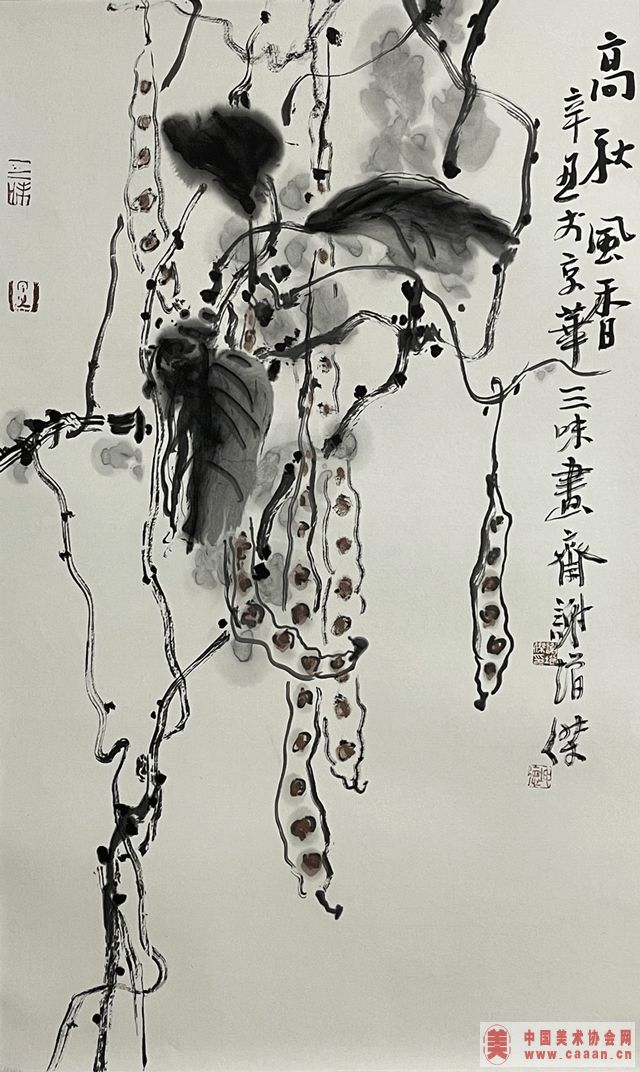 高秋風香
辛丑於京華三味畫齋謝傑
三味
美
中国美术协会网
www.caaan.cn